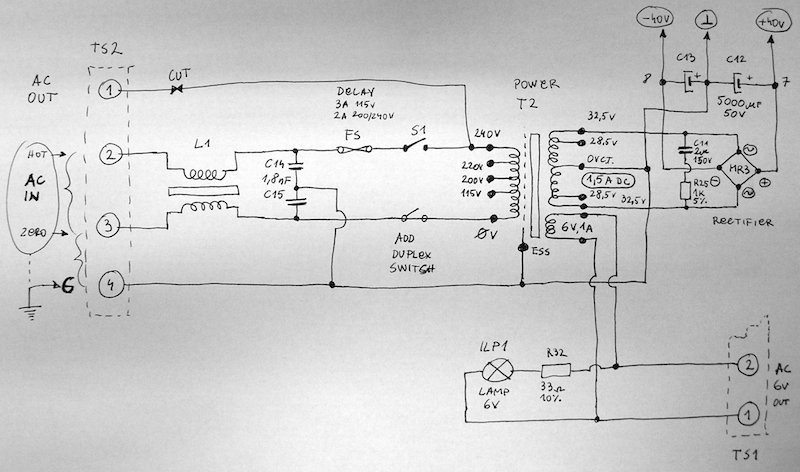 -40V
⊥
+40V
TS2
AC
OUT
1
CUT
DELAY
3A 115V
2A 200/240V
FS
S1
POWER
T2
8
C13
+
C12
+
7
5000µF
50V
HOT
2
L1
C14
1,8nF
C15
240V
220V
200V
115V
0V
32,5V
28,5V
0VCT.
1,5A DC
28,5V
32,5V
6V,1A
C11
2µF
150V
R25
1K
5%
~
MR3
-
+
~
RECTIFIER
AC
IN
ZERO
3
ADD
DUPLEX
SWITCH
ESS
G
4
ILP1
LAMP
6V
R32
33Ω
10%
2
1
AC
6V
OUT
TS1